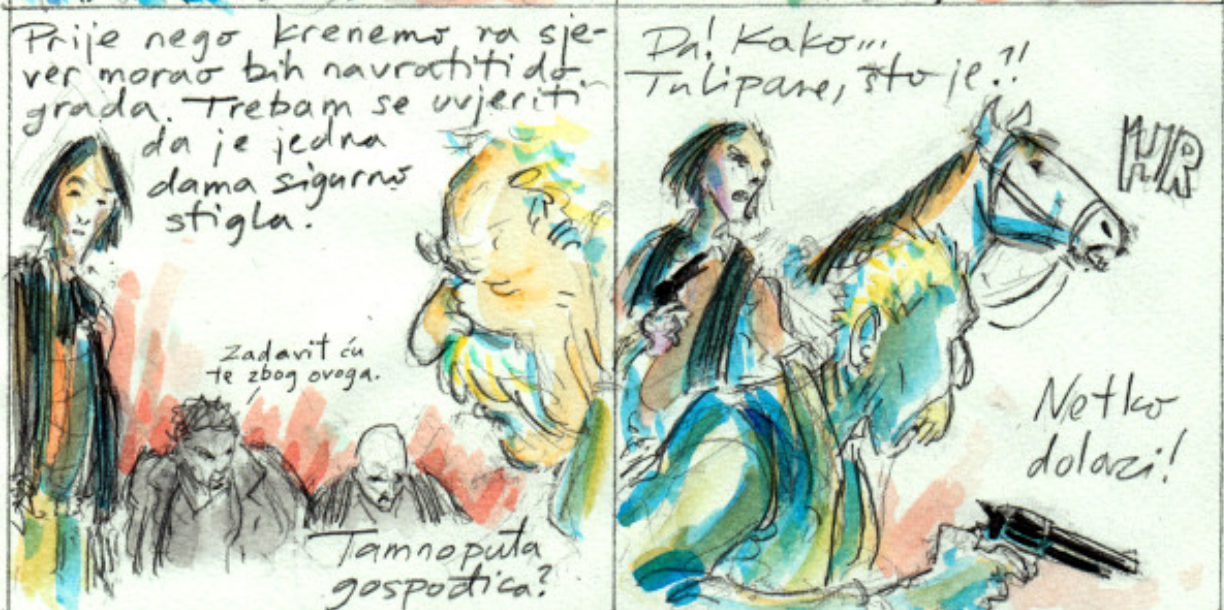 Prije nego krenemo na sje-
ver morao bih navratiti do
grada. Trebam se uvjeriti
da je jedna
dama sigurno
stigla.
Zadavit ću
te zbog ovoga.
Tamnoputa
gospođica?
Da! Kako...
Tulipane, što je?!
HR
Netko
dolazi!